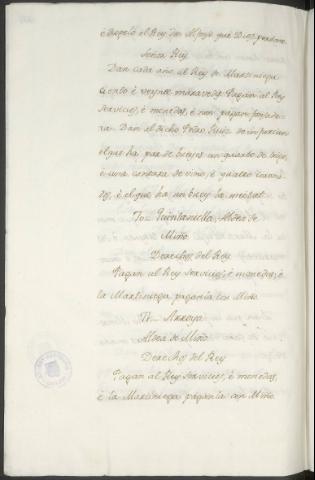 é despues el Rey don Alfonso que Dios perdone.
Señor Rey
Dan cada año al Rey de Martiniega
ciento é veynte maravedis. Pagan al Rey
servicios, é monedas, é non pagan fonsade-
ra. Dan al dicho Pedro Ruiz de infurcion
el que ha par de bueyes un quarto de trigo,
é una cantara de vino, é quatro
é el que ha un buey la meitat.
Quintanilla, Aldea de
Miño
Derechos del Rey
Pagan al Rey servicios, é monedas, é
la Martiniega paganla con Miño.
Arroyo
Aldea de Miño
Derechos del Rey
Pagan al Rey servicios, é monedas,
é la Martiniega paganla con Miño.